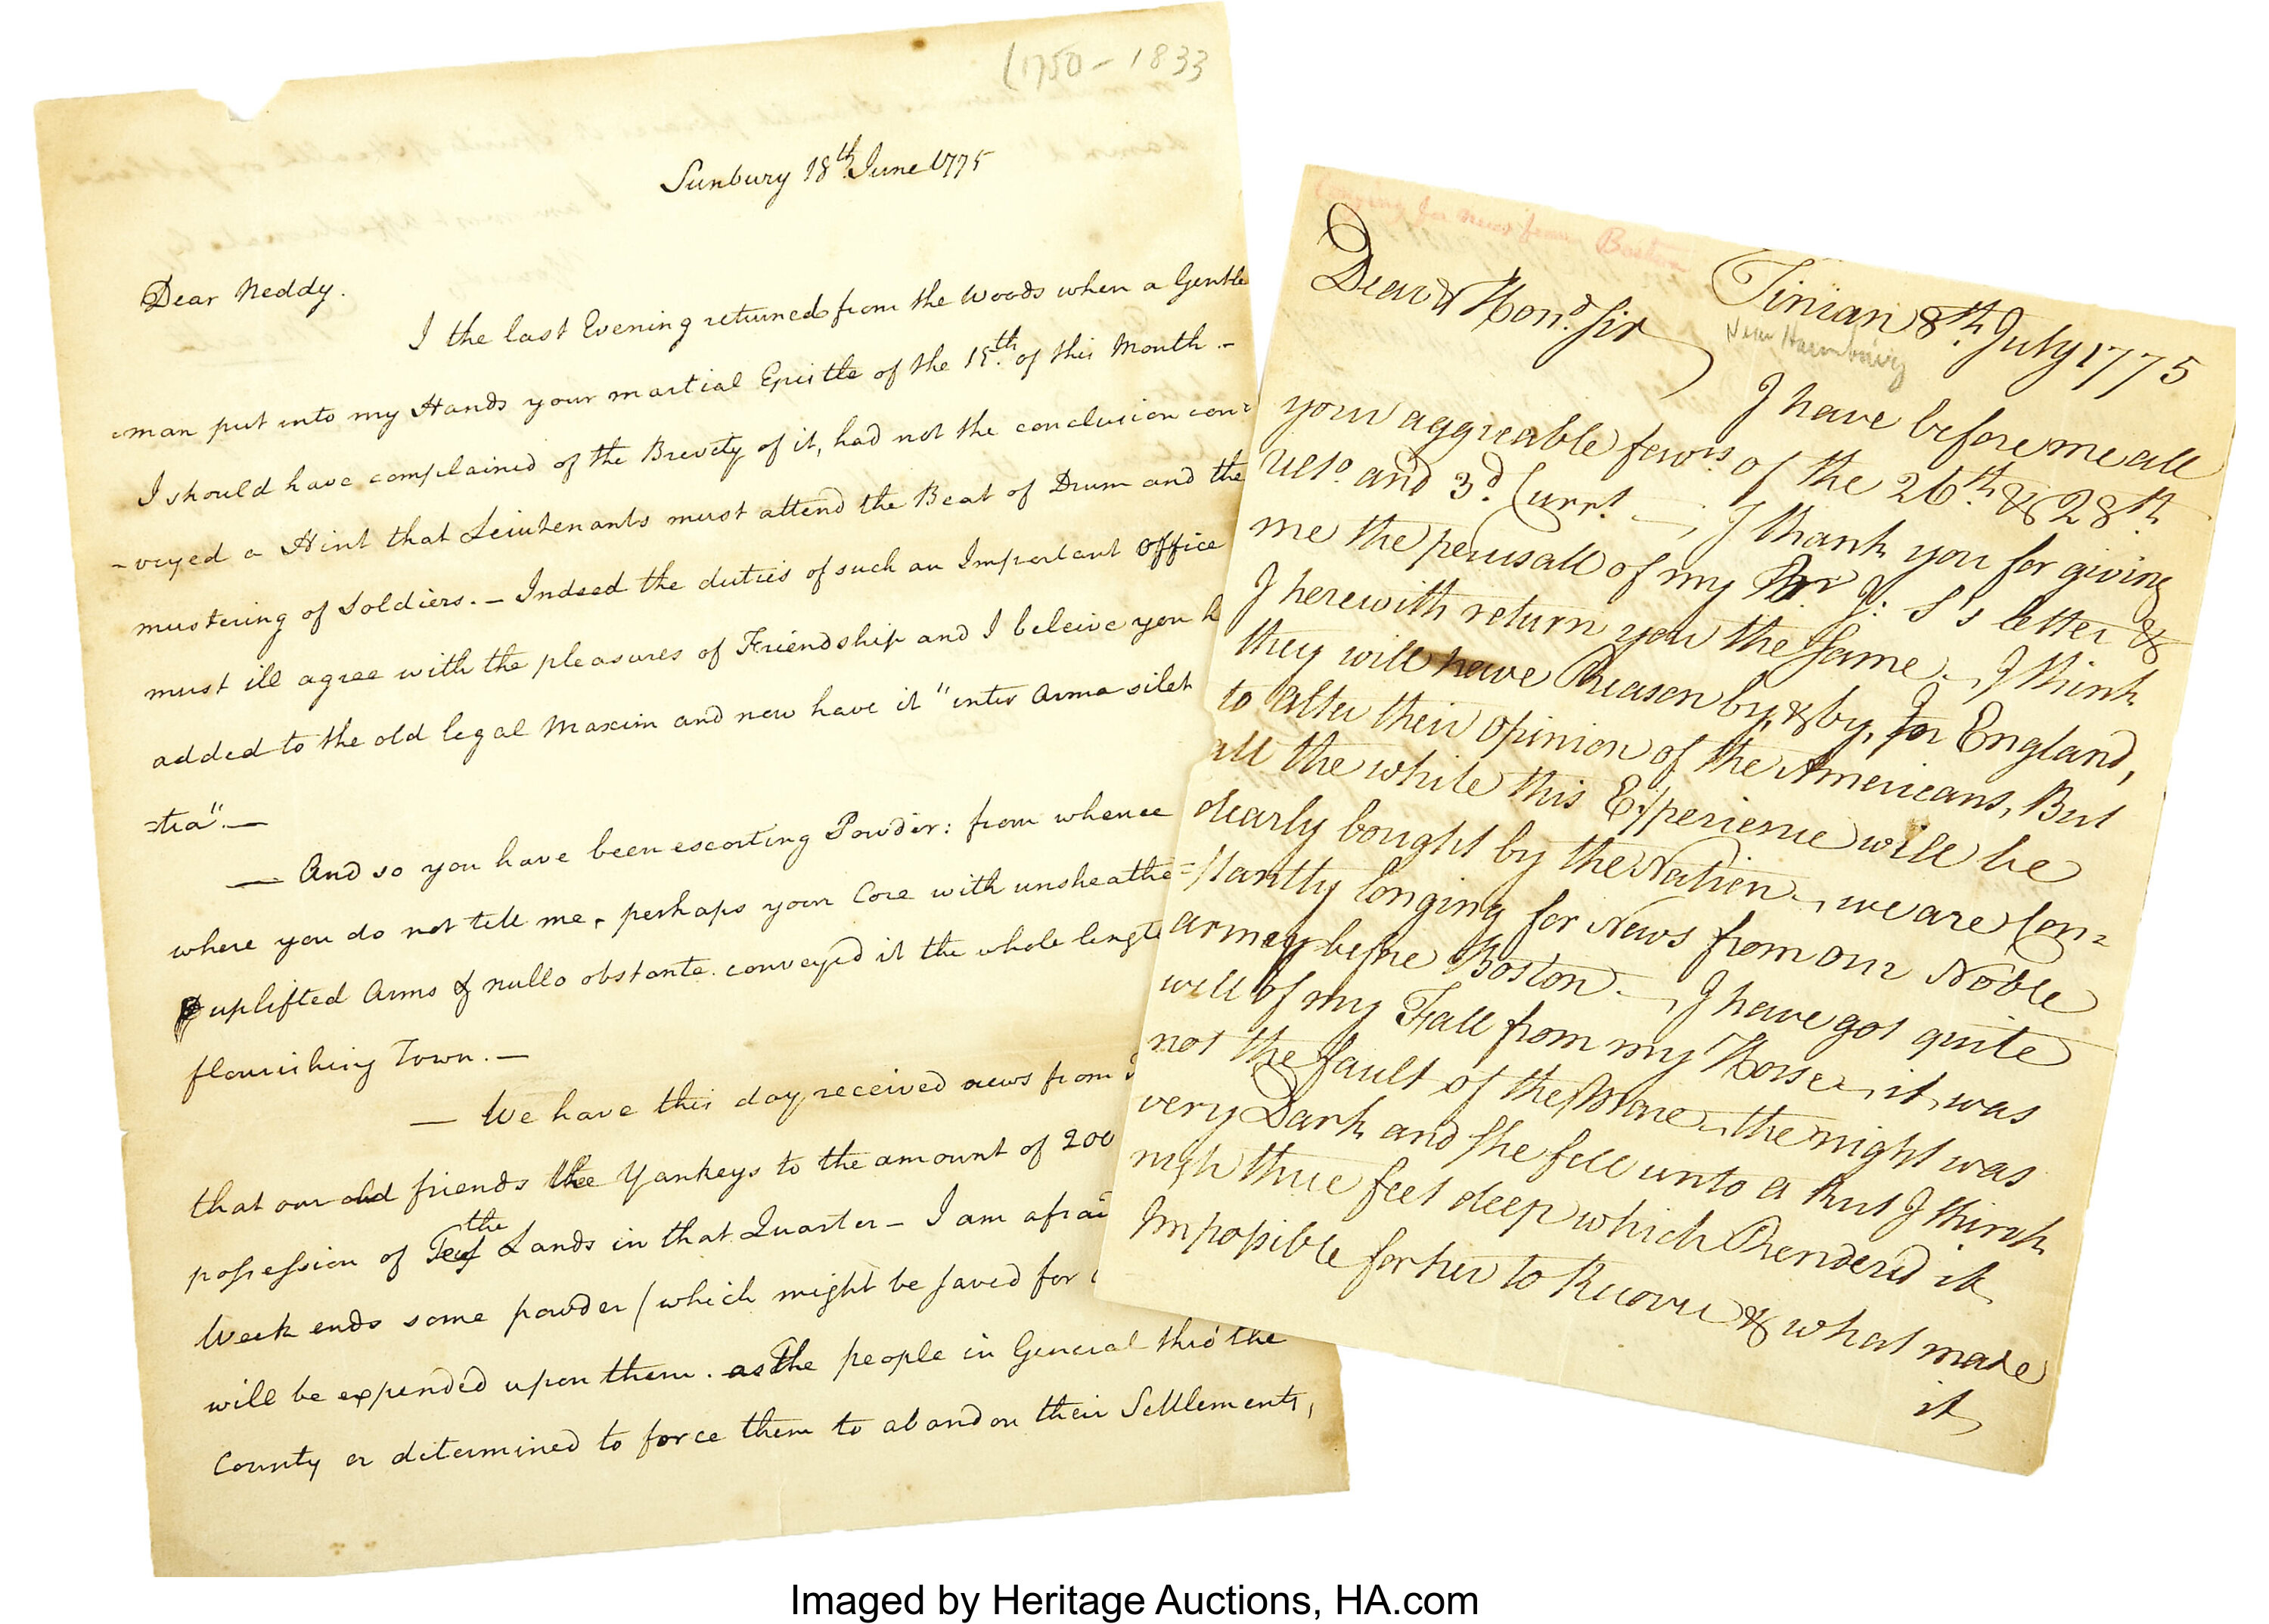 (1750 - 1833
Sunbury 18th June 1775
Dear Neddy.
I the last Evening returned from the Woods when a Gentle
=man put into my Hands your martial Epistle of the 15th of this Month -
I should have complained of the Brevity of it, had not the conclusion con=
-veyed a Hint that Leiutenants must attend the Beat of Drum and the
mustering of Soldiers. - Indeed the duties of such an Important office
must ill agree with the pleasures of Friendship and I beleive you h
added to the old legal Maxim and now have it "inter Arma silet
=tia". —
— And so you have been escorting Powder: from whence
where you do not tell me, perhaps your Core with unsheathe
uplifted Arms & nullo obstante conveyed it the whole length
flourishing Town. —
— We have this day received news from
that our old friends the Yankeys to the amount of 200
possession of the Lands in that Quarter - I am afraid
Week ends some powder (which might be saved for
will be expended upon them. as the people in General thro' the
County er determined to force them to abandon their Settlements,
Longing for news from Boston
Tinian 8th July 1775
New Hamburg
Dear & Hond. Sir
I have before me all
your aggreable favrs. of the 26th & 28th
Ulto. and 3d. Currt. — I thank you for giving
me the perusall of my Br J: S's letter &
I herewith return you the Same - I think
they will have Reason by & by, in England,
to alter their opinion of the Americans, But
all the while this Experience will be
dearly bought by the Nation - we are Con=
=stantly longing for News from our Noble
army before Boston. — I have got quite
well of my Fall from my Horse - it was
not the fault of the Mare - the night was
very Dark and She fell into a Rut I think
nigh three feet deep which Rendered it
Impossible for her to Recover & what made
it
Imaged by Heritage Auctions, HA.com